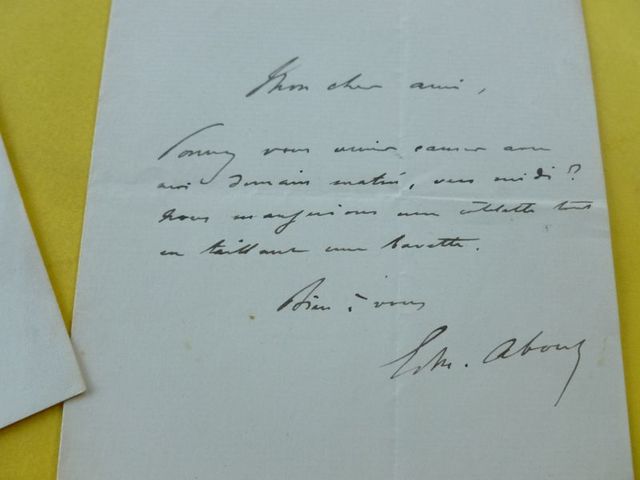 Mon cher ami,
Pouvez vous venir causer avec
moi demain matin, vers midi?
Nous mangerions une côtelette tout
en taillant une bavette.
Bien à vous
Edm. About